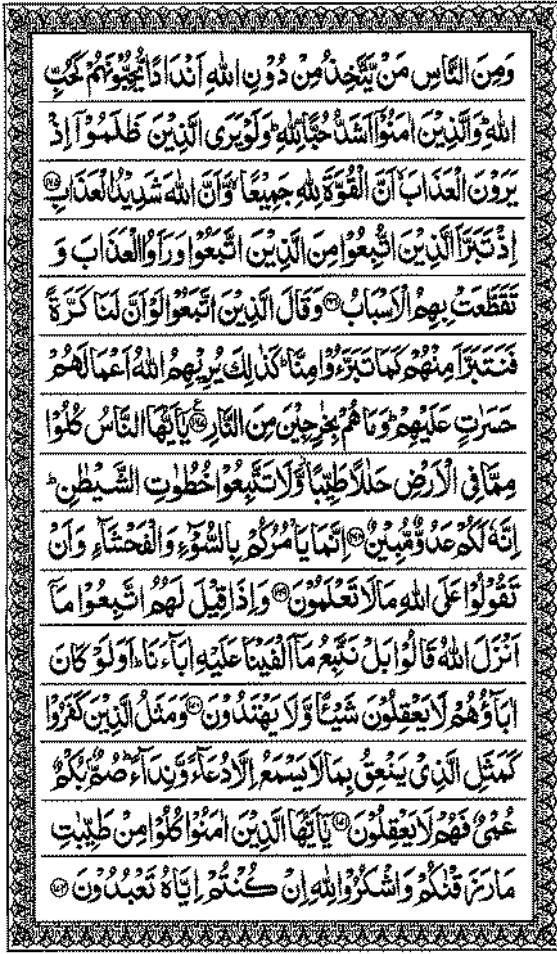 وَمِنَ النَّاسِ مَنْ يَّتَّخِذُ مِنْ دُوْنِ اللّٰهِ اَنْدَادًا يُّحِبُّوْنَهُمْ كَحُبِّ
اللّٰهِ ؕ وَالَّذِيْنَ اٰمَنُوْۤا اَشَدُّ حُبًّا لِّلّٰهِ ؕ وَلَوْ يَرَى الَّذِيْنَ ظَلَمُوْۤا اِذْ
يَرَوْنَ الْعَذَابَ ۙ اَنَّ الْقُوَّةَ لِلّٰهِ جَمِيْعًا ۙ وَّاَنَّ اللّٰهَ شَدِيْدُ الْعَذَابِ ﴿۱۶۵﴾
اِذْ تَبَرَّاَ الَّذِيْنَ اتُّبِعُوْا مِنَ الَّذِيْنَ اتَّبَعُوْا وَرَاَوُا الْعَذَابَ وَ
تَقَطَّعَتْ بِهِمُ الْاَسْبَابُ ﴿۱۶۶﴾ وَقَالَ الَّذِيْنَ اتَّبَعُوْا لَوْ اَنَّ لَنَا كَرَّةً
فَنَتَبَرَّاَ مِنْهُمْ كَمَا تَبَرَّءُوْا مِنَّا ؕ كَذٰلِكَ يُرِيْهِمُ اللّٰهُ اَعْمَالَهُمْ
حَسَرٰتٍ عَلَيْهِمْ ؕ وَمَا هُمْ بِخٰرِجِيْنَ مِنَ النَّارِ ﴿۱۶۷﴾ؑ يٰۤاَيُّهَا النَّاسُ كُلُوْا
مِمَّا فِى الْاَرْضِ حَلٰلًا طَيِّبًا ۖ وَّلَا تَتَّبِعُوْا خُطُوٰتِ الشَّيْطٰنِ ؕ
اِنَّهٗ لَكُمْ عَدُوٌّ مُّبِيْنٌ ﴿۱۶۸﴾ اِنَّمَا يَاْمُرُكُمْ بِالسُّوْٓءِ وَالْفَحْشَآءِ وَاَنْ
تَقُوْلُوْا عَلَى اللّٰهِ مَا لَا تَعْلَمُوْنَ ﴿۱۶۹﴾ وَاِذَا قِيْلَ لَهُمُ اتَّبِعُوْا مَاۤ
اَنْزَلَ اللّٰهُ قَالُوْا بَلْ نَتَّبِعُ مَاۤ اَلْفَيْنَا عَلَيْهِ اٰبَآءَنَا ؕ اَوَلَوْ كَانَ
اٰبَآؤُهُمْ لَا يَعْقِلُوْنَ شَيْـًٔا وَّلَا يَهْتَدُوْنَ ﴿۱۷۰﴾ وَمَثَلُ الَّذِيْنَ كَفَرُوْا
كَمَثَلِ الَّذِىْ يَنْعِقُ بِمَا لَا يَسْمَعُ اِلَّا دُعَآءً وَّنِدَآءً ؕ صُمٌّۢ بُكْمٌ
عُمْىٌ فَهُمْ لَا يَعْقِلُوْنَ ﴿۱۷۱﴾ يٰۤاَيُّهَا الَّذِيْنَ اٰمَنُوْا كُلُوْا مِنْ طَيِّبٰتِ
مَا رَزَقْنٰكُمْ وَاشْكُرُوْا لِلّٰهِ اِنْ كُنْتُمْ اِيَّاهُ تَعْبُدُوْنَ ﴿۱۷۲﴾